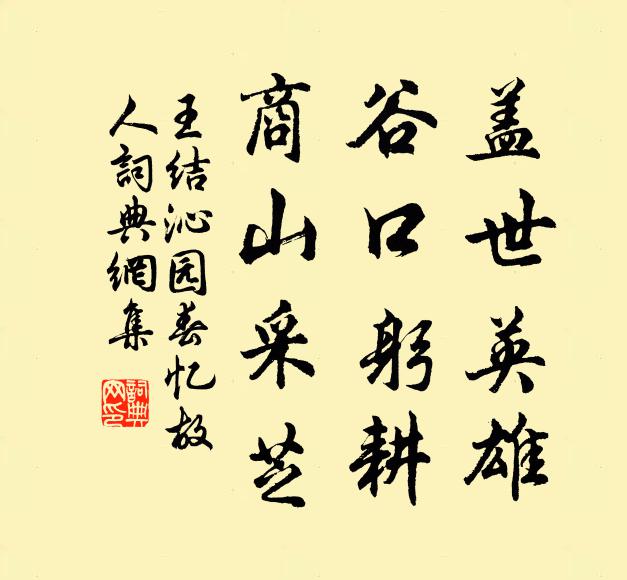 盖世英雄
谷口躬耕
商山采芝
王结沁园春忆故
人詞典網集
詞典网印